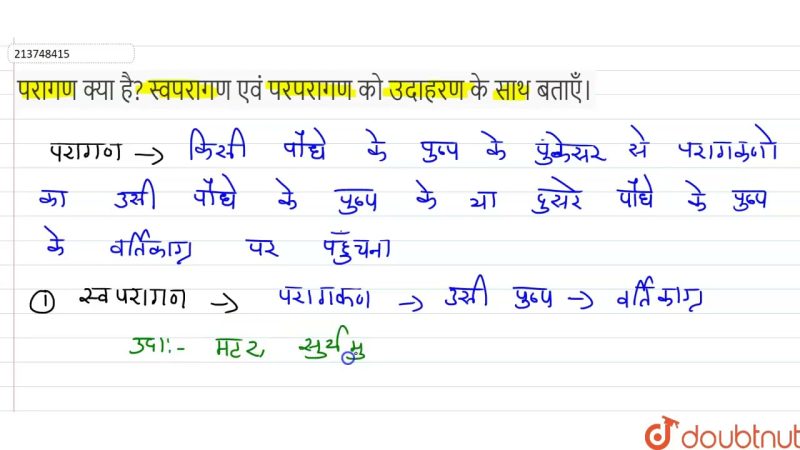 213748415
परागण क्या है? स्वपरागण एवं परपरागण को उदाहरण के साथ बताएँ।
परागण → किसी पौधे के पुष्प के पुंकेसर से परागकणो
का उसी पौधे के पुष्प के या दुसरे पौधे के पुष्प
के वर्तिकाग्र पर पहुँचना
① स्वपरागण → परागकण → उसी पुष्प → वर्तिकाग्र
उदाः- मटर, सुर्यमु
doubtnut